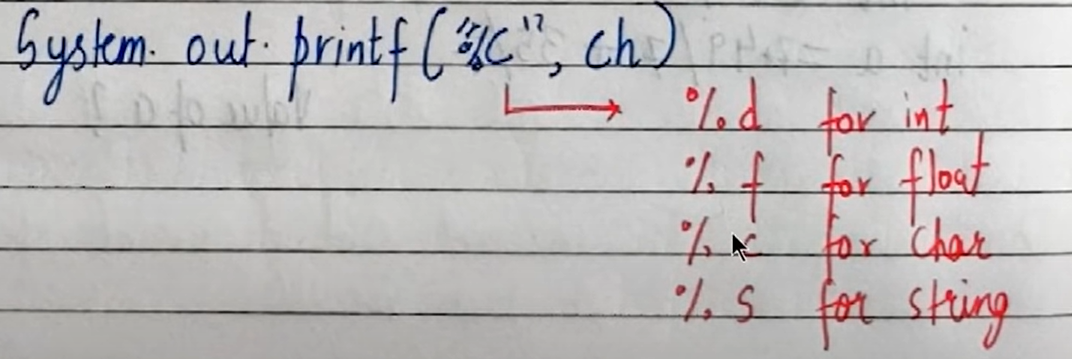 System. out. printf("%c", ch)
%d for int
%f for float
%c for char
%s for string